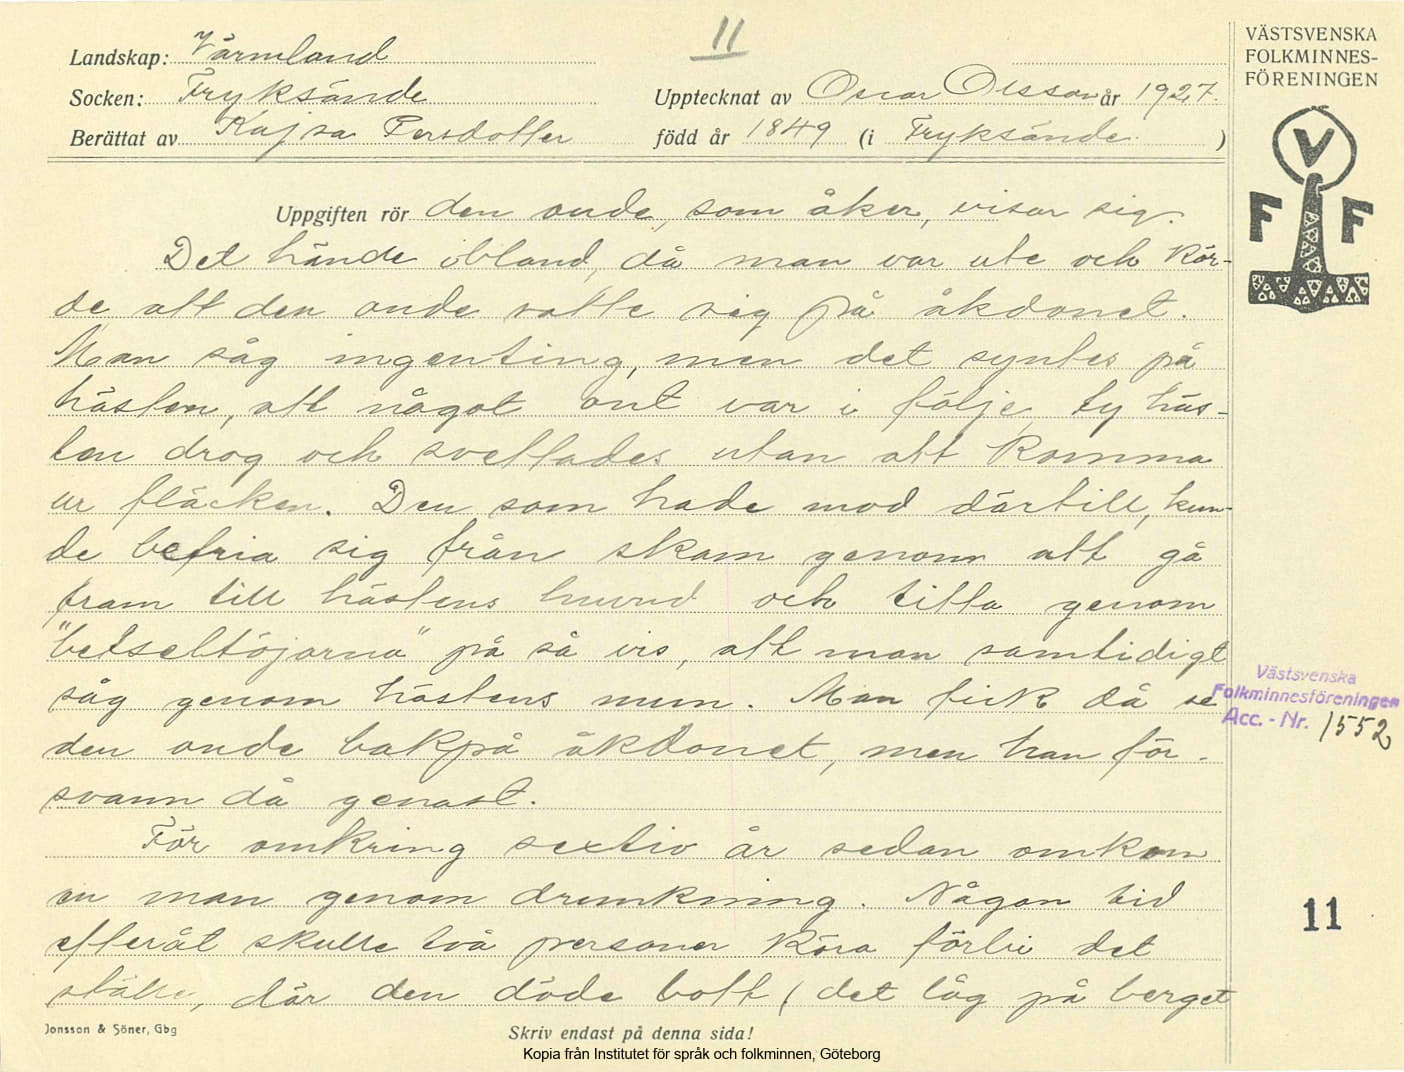 11
Landskap: Värmland
Socken: Fryksände
Upptecknat av Oscar Olsson år 1927.
Berättat av Kajsa Persdotter
född år 1849 (i Fryksände. )
VÄSTSVENSKA
FOLKMINNES-
FÖRENINGEN
V
F F
Uppgiften rör den onde, som åker, visar sig.
Det hände ibland, då man var ute och kör-
de att den onde satte sig på åkdonet.
Man såg ingenting, men det syntes på
hästen, att något ont var i följe, ty häs-
ten drog och svettades utan att komma
ur fläcken. Den som hade mod därtill, kun-
de befria sig från skam genom att gå
fram till hästens huvud och titta genom
"betseltöjarna" på så vis, att man samtidigt
såg genom hästens mun. Man fick då se
den onde bakpå åkdonet, men han för-
svann då genast.
För omkring sextio år sedan omkom
en man genom drunkning. Någon tid
efteråt skulle två personer köra förbi det
ställe, där den döde bott (det låg på berget
Västsvenska
Folkminnesföreningen
Acc. - Nr. 1552
11
Jonsson & Söner, Gbg
Skriv endast på denna sida!
Kopia från Institutet för språk och folkminnen, Göteborg